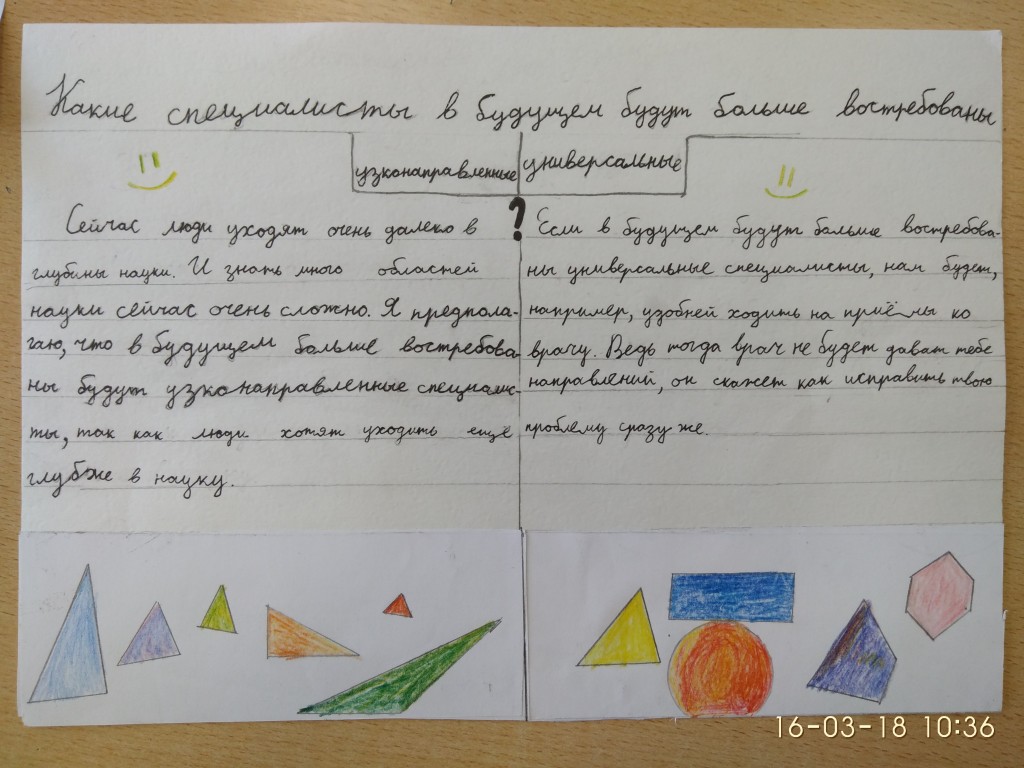 Какие специалисты в будущем будут больше востребованы
узконаправленные универсальные
?
Сейчас люди уходят очень далеко в
глубины науки. И знать много областей
науки сейчас очень сложно. Я предпола-
гаю, что в будущем больше востребова
ны будут узконаправленные специалис-
ты, так как люди хотят уходить ещё
глубже в науку.
Если в будущем будут больше востребова-
ны универсальные специалисты, нам будет,
например, удобней ходить на приёмы ко
врачу. Ведь тогда врач не будет дават тебе
направлений, он скажет как исправить твою
проблему сразу же.
16-03-18 10:36